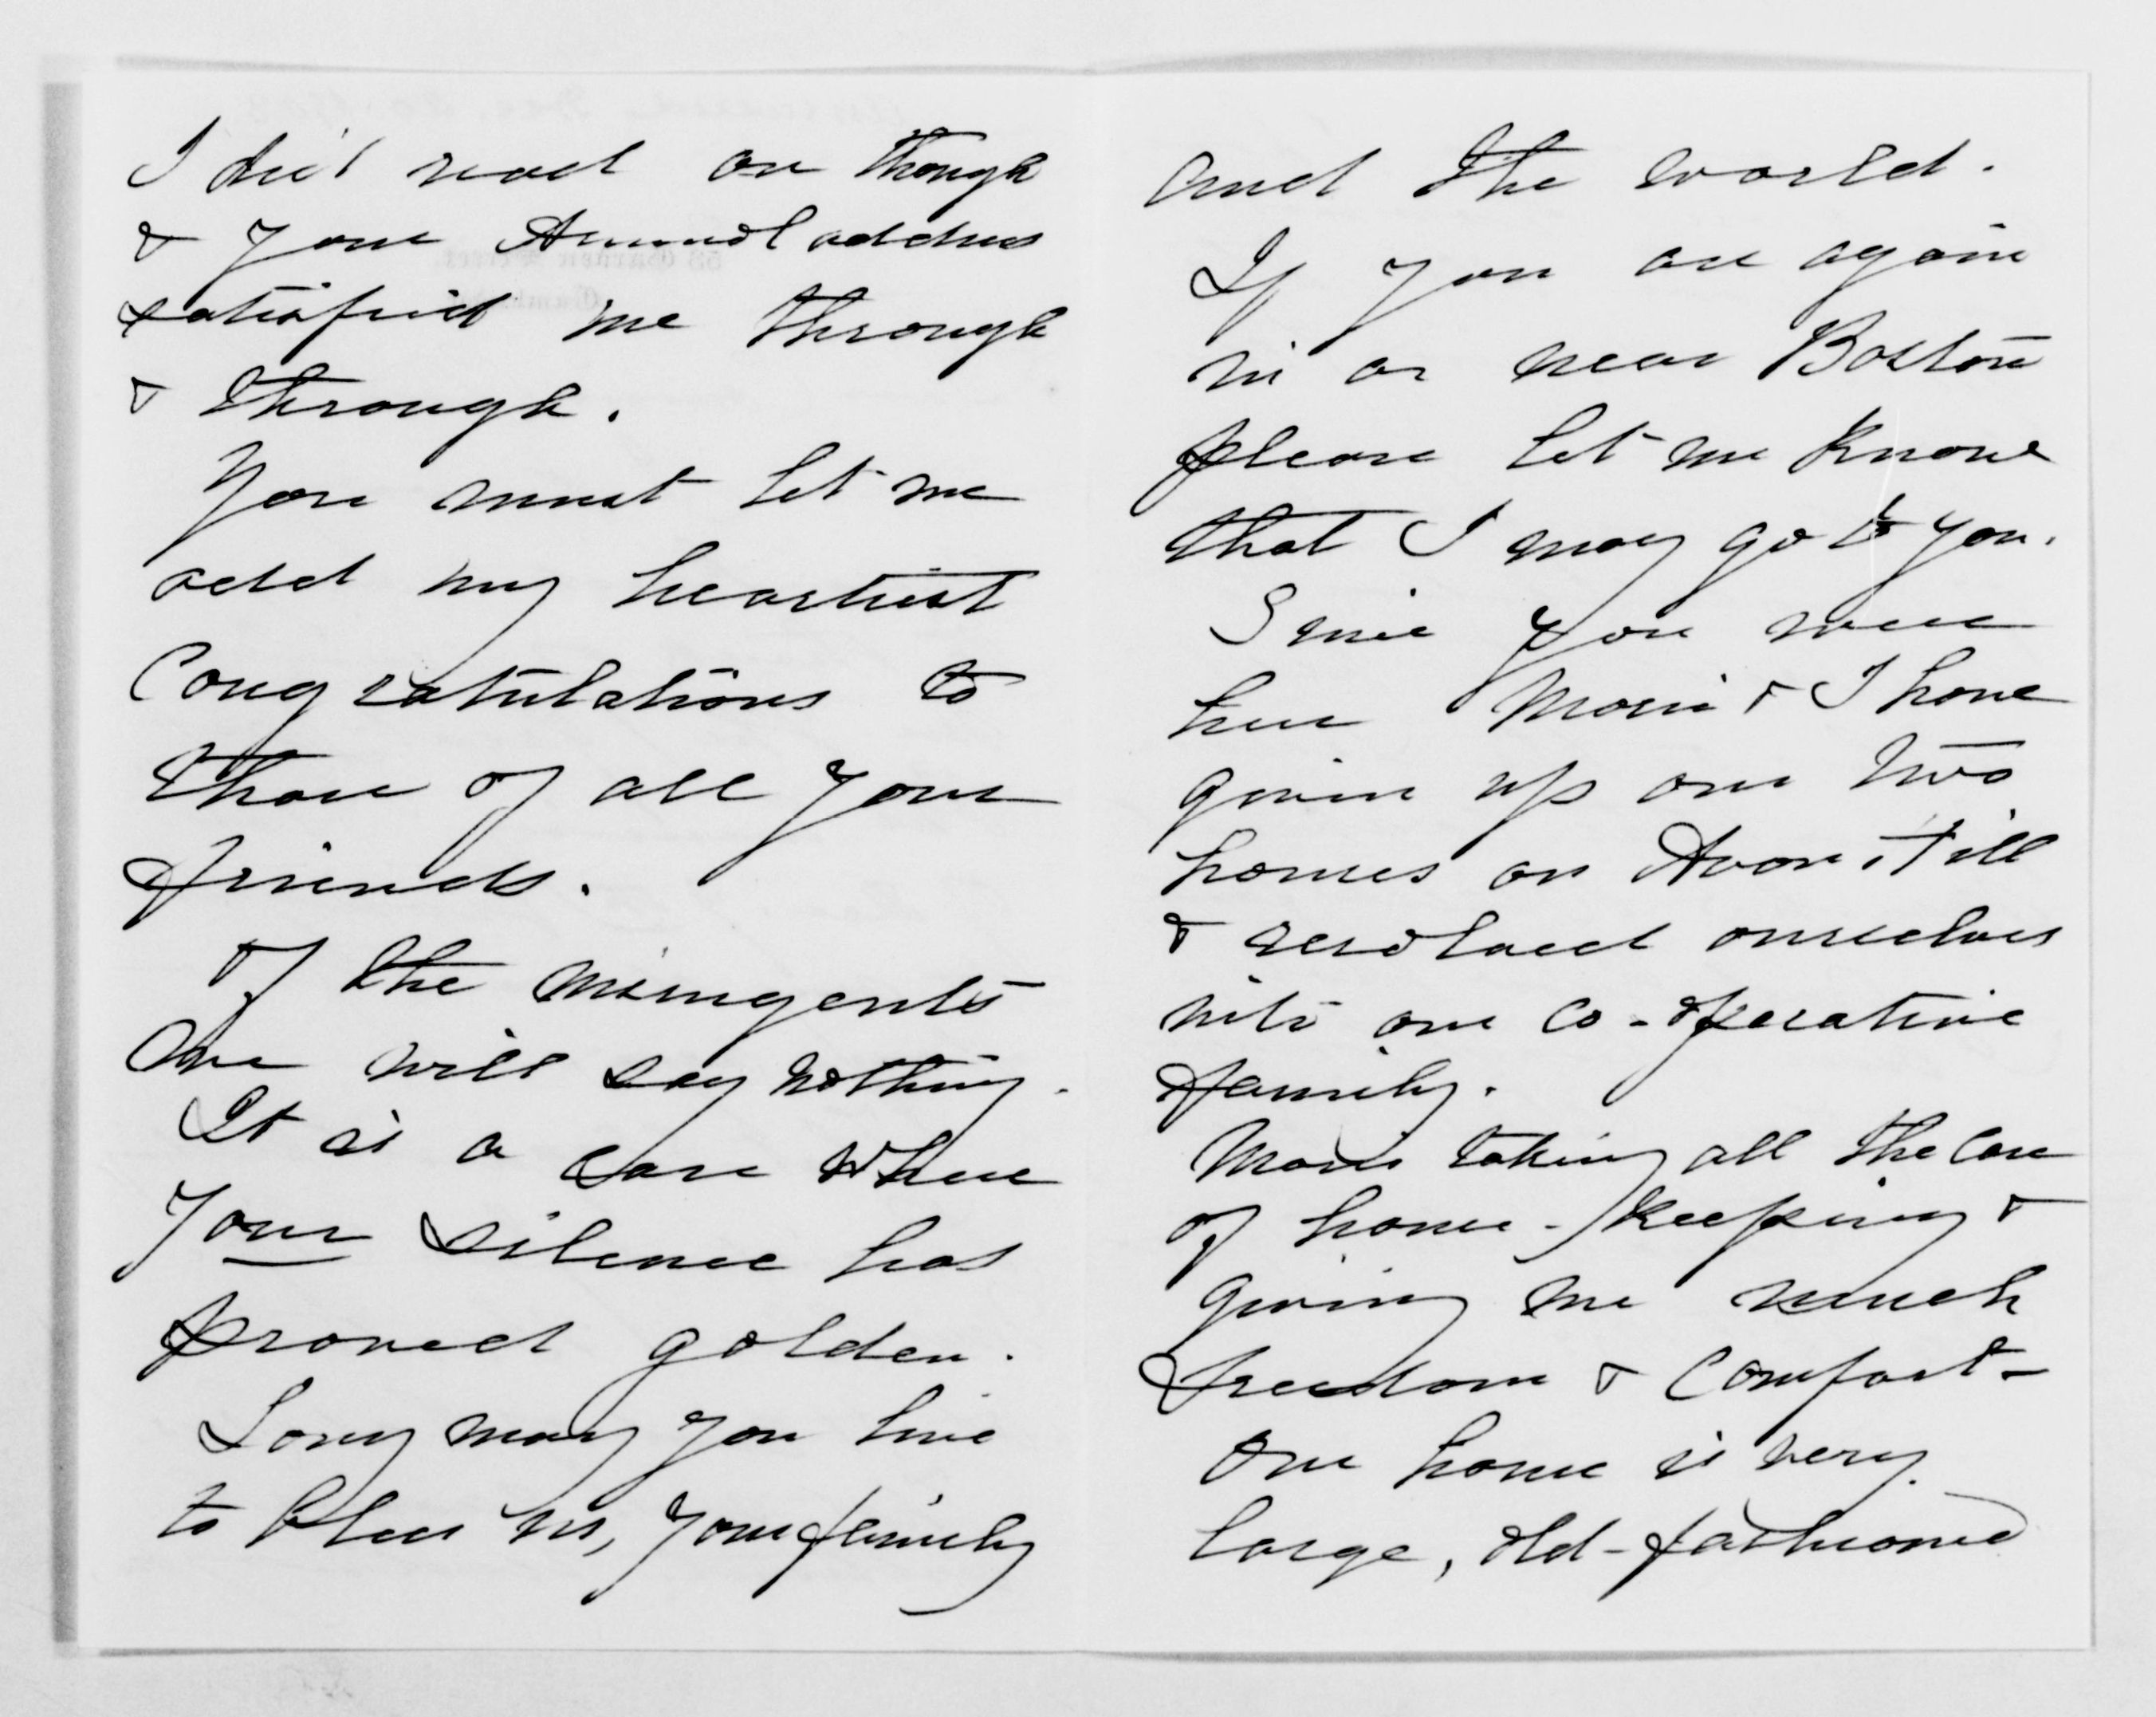 I did read on though
& your Annual address
satisfied me through
& through.
You must let me
add my heartiest
Congratulations to
those of all your
friends.
Of the insurgents
One will say nothing.
It is a case where
Your silence has
proved golden.
Long may you live
to bless us, your family
and the world.
If you are again
in or near Boston
please let me know
that I may go to you.
Since you were
here & I have
given up our two
homes on Avon Hill
& resolved ourselves
into one co-operative
family.
taking all the care
of house-keeping &
giving me much
freedom & Comfort-
Our house is very
large, old-fashioned